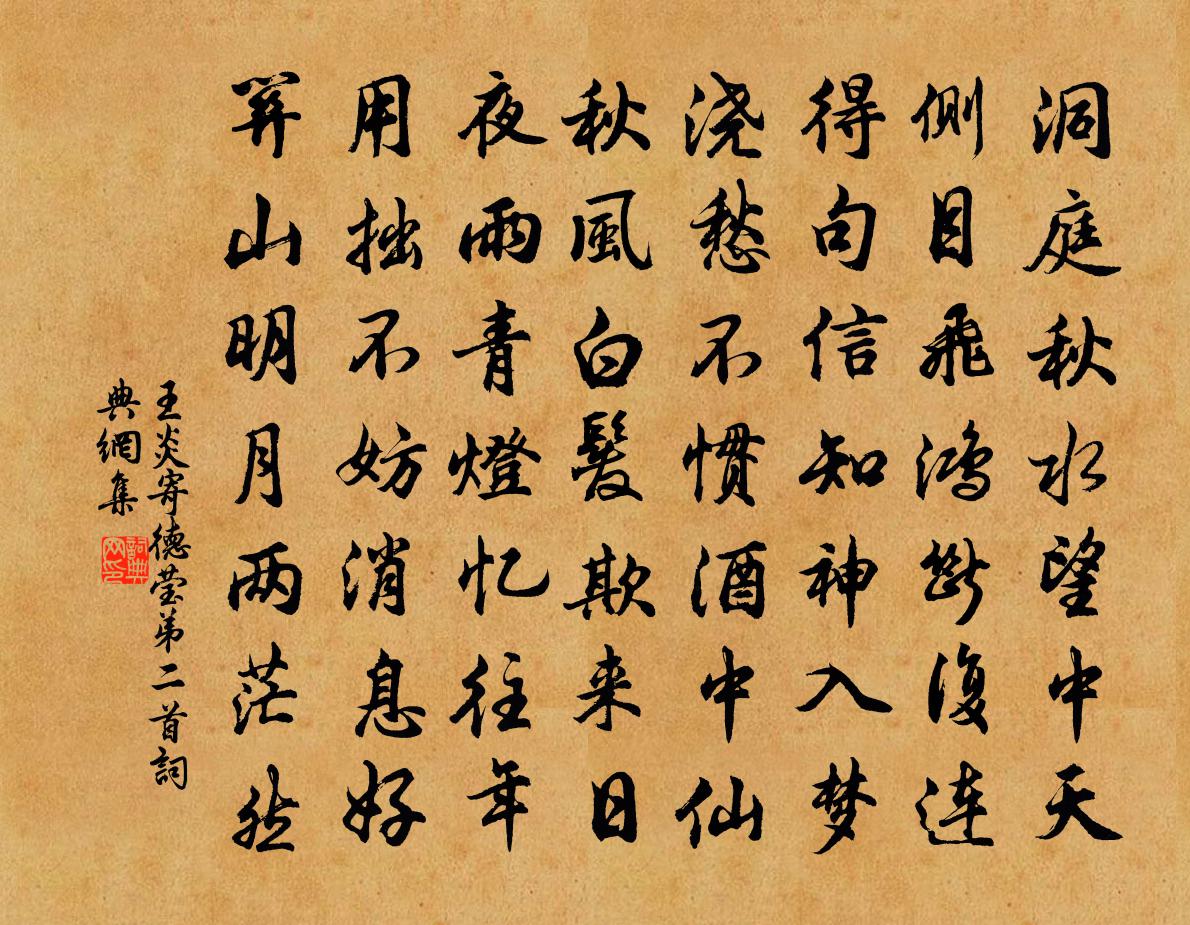 洞庭秋水望中天
侧目飛鸿斷復连
得句信知神入梦
浇愁不惯酒中仙
秋風白髮欺来日
夜雨青燈忆往年
用拙不妨消息好
山明月两茫然
王炎寄德莹第二首詞
典網集
詞典
网印